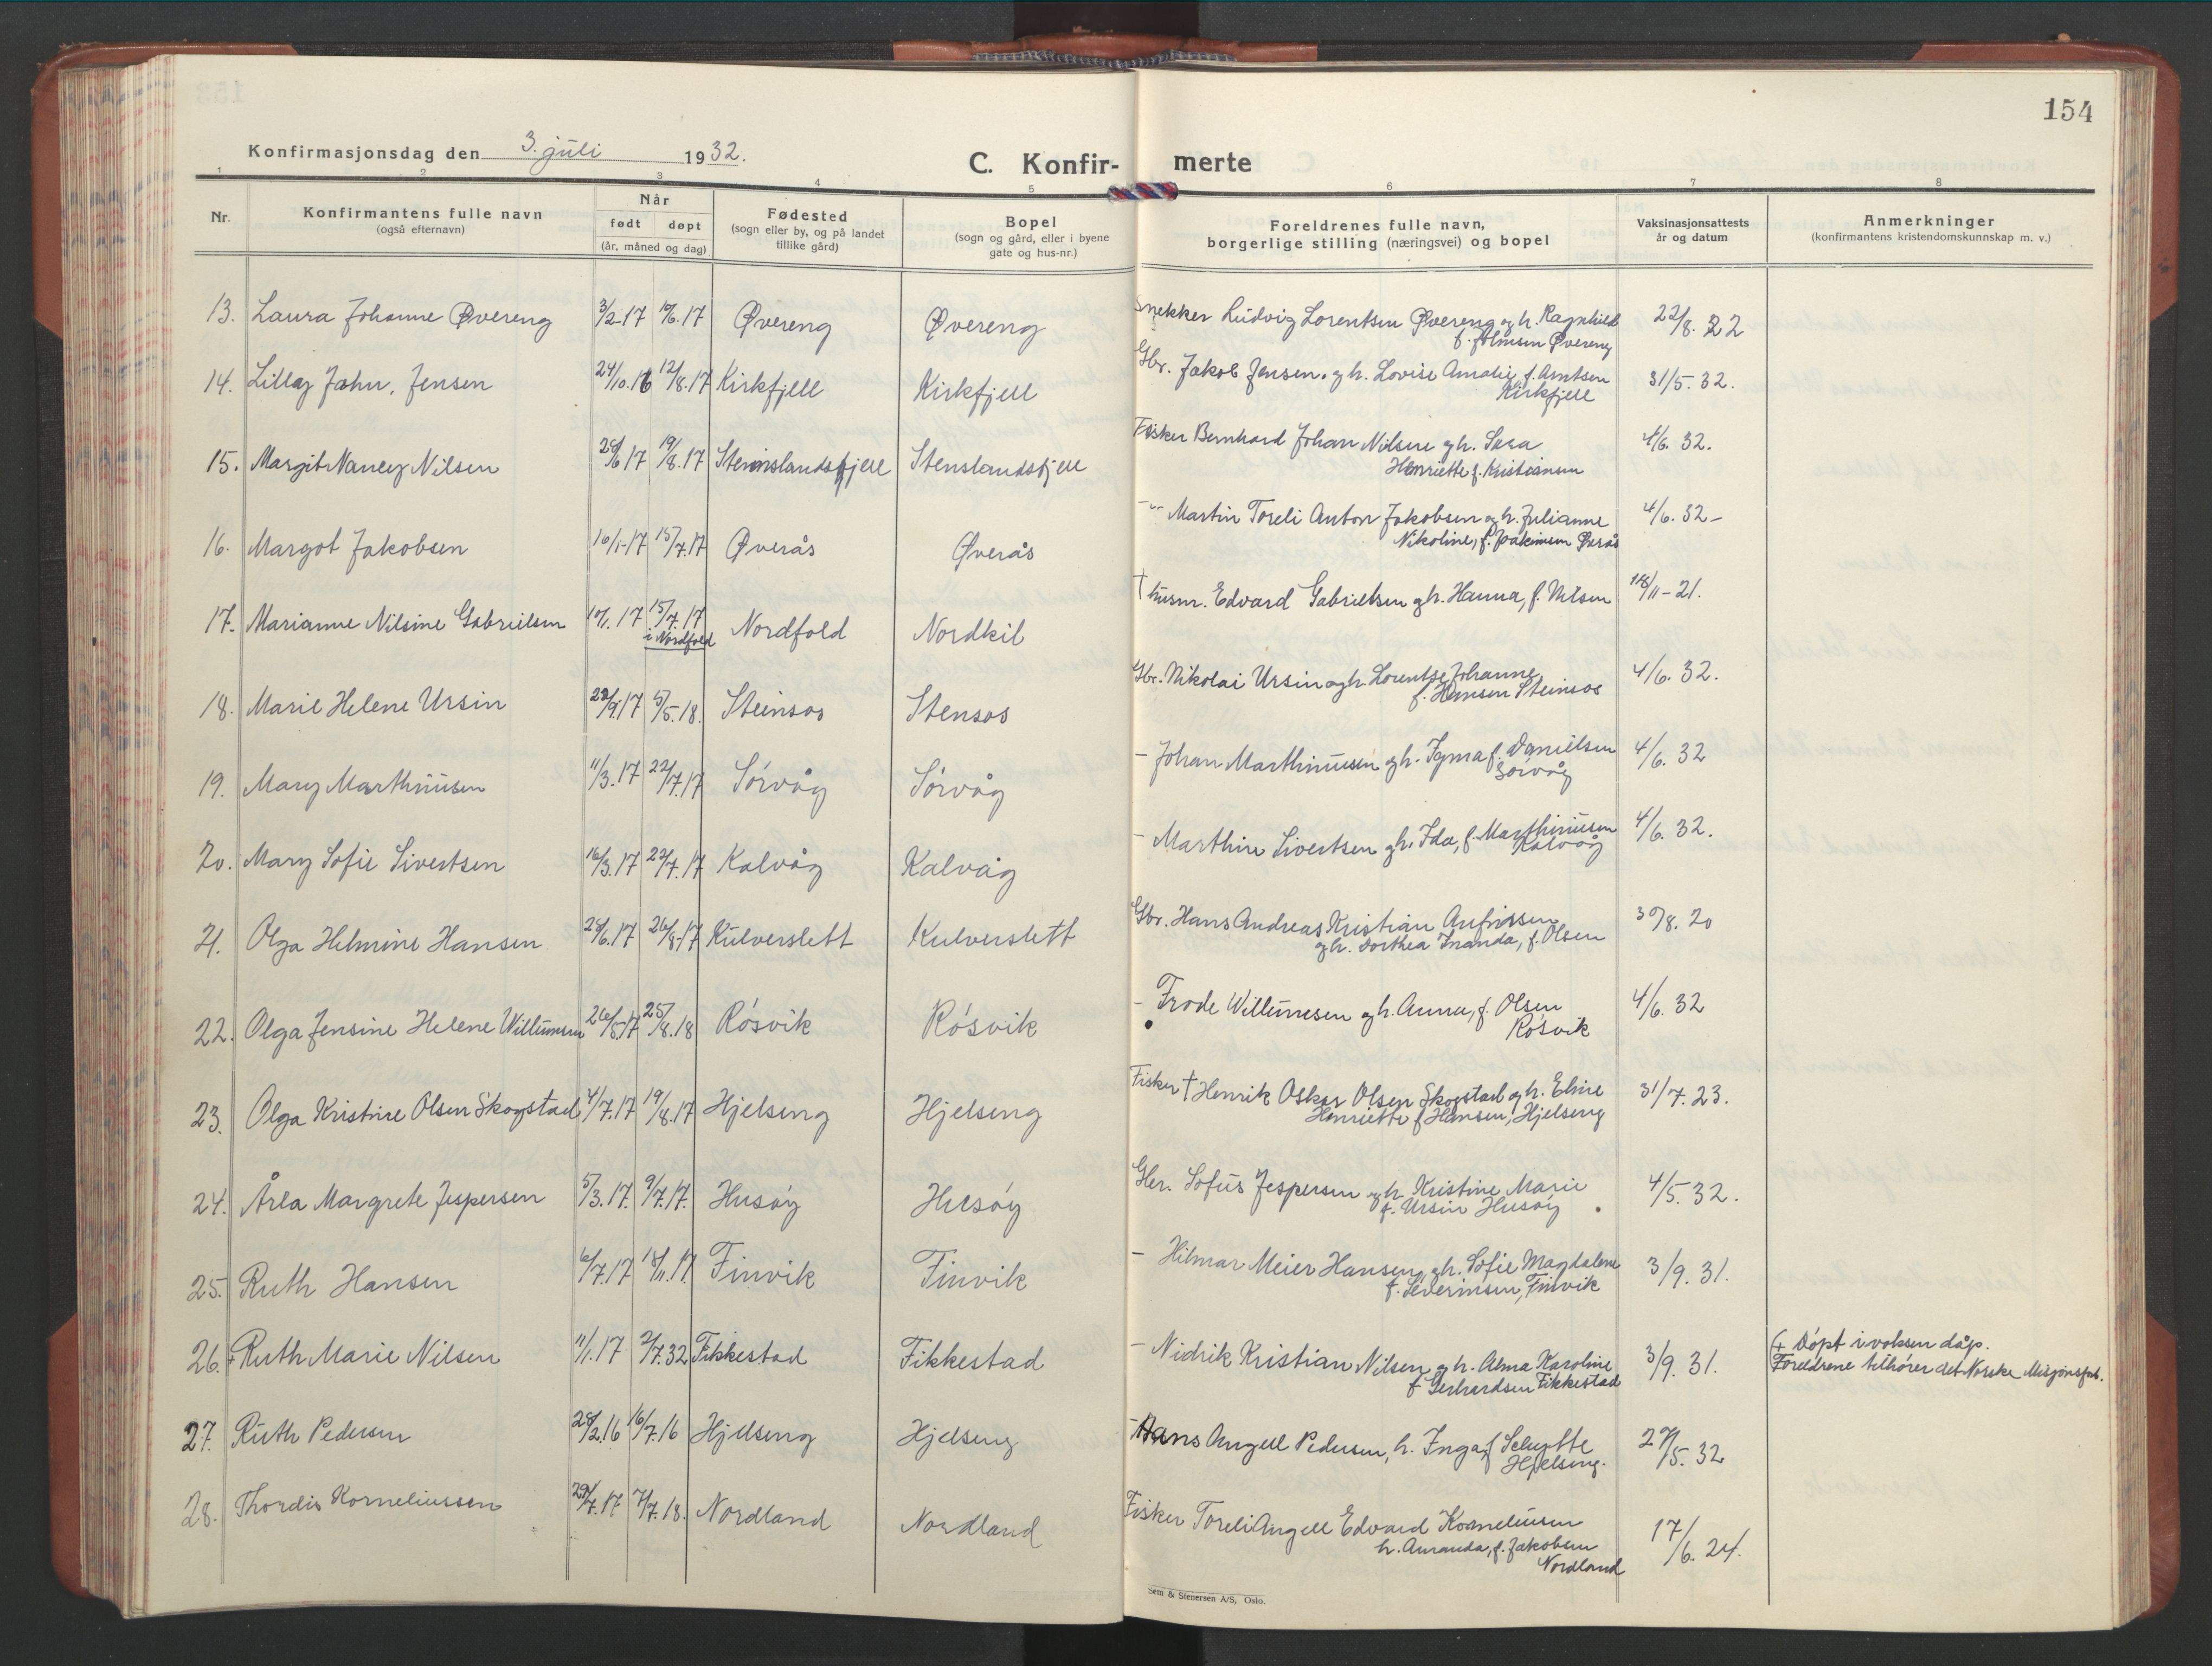 154
Konfirmasjonsdag den 3. juli 1932.
C. Konfir- merte
1 2 3 4 5 6 7 8
Nr. Konfirmantens fulle navn (også efternavn) Når født døpt (år, måned og dag) Fødested (sogn eller by, og på landet tillike gård) Bopel (sogn og gård, eller i byene gate og hus-nr.) Foreldrenes fulle navn, borgerlige stilling (næringsvei) og bopel Vaksinasjonsattests år og datum Anmerkninger (konfirmantens kristendomskunnskap m. v.)
13. Laura Johanne Øvereng 3/2-17 10/6.17 Øvereng Øvereng Snekker Ludvig Lorentsen Øvereng og h. Ragnhild 22/8. 22
f. Øvereng
14. Lilly Jensen 24/10.16 12/8.17 Kirkfjell Kirkfjell Gbr. Jakob Jensen. og h. Lovise Amalie f. Arntsen 31/5. 32.
Kirkfjell
15. Margit Nancy Nilsen 28/6 17 19/8.17 Steinslandsfjell Stenslandsfjell Fisker Bernhard Johan Nilsen og h. Sara 4/6. 32.
Henriette f. Kristiansen
16. Margot Jakobsen 16/1-17 15/7.17 Øverås Øverås -"- Martin Toreli Anton Jakobsen og h. Julianne 4/6. 32-
Nikoline, f. Øverås
17. Marianne Nilsine Gabrielsen 10/1. 17 15/7. 17 Nordfold Nordkil † husm. Edvard Gabrielsen og h. Hanna, f. Nilsen 18/11-21.
i Nordfold
18. Marie Helene Ursin 29/9.17 5/5.18. Steinsos Stensos Gbr. Nikolai Ursin og h. Lorentse Johanne 4/6. 32.
f. Hansen Steinsos
19. Mary Marthinusen 11/3.17 22/7.17 Sörvåg Sörvåg - Johan Marthinusen og h. f. Danielsen 4/6. 32
Sörvåg
20. Mary Sofie Sivertsen 16/3.17 22/7.17 Kalvåg Kalvåg - Marthin Sivertsen og h. Ida, f. Marthinusen 4/6. 32.
Kalvåg
21. Olga Helmine Hansen 28/6.17 26/8.17 Kulverslett Kulverslett Gbr. Hans Andreas Kristian Anfinsen 30/8. 20
og h. Dorthea Inanda, f. Olsen
22. Olga Jensine Helene Willumsen 26/5.17 25/8.18 Rösvik Rösvik - Frode Willumsen og h. Anna, f. Olsen 4/6. 32
Rösvik
23. Olga Kristine Olsen Skogstad 4/7.17 19/8.17 Hjelseng Hjelseng Fisker † Henrik Oskar Olsen Skogstad og h. Eline 31/7. 23.
Henriette f. Hansen, Hjelseng
24. Årla Margrete Jespersen 5/3.17. 9/7.17. Husöy Husöy Gbr. Sofus Jespersen og h. Kristine Marie 4/5. 32.
f. Ursin Husöy
25. Ruth Hansen 6/7.17 18/11.17 Finvik Finvik - Hilmar Meier Hansen, og h. Sofie Magdalene 3/9. 31.
f. Severinsen, Finvik
26. + Ruth Marie Nilsen 11/1.17 2/7.32 Fikkestad Fikkestad - Nidrik Kristian Nilsen og h. Alma Karoline 3/9. 31. (+ Döpt i voksen dåp.
f. Gerhardsen Fikkestad Foreldrene tilhører det Norske Misjonsforb.
27. Ruth Pedersen 28/2.16 16/7.16 Hjelseng Hjelseng - Hans Angell Pedersen, h. Inga f. Schytte 29/5. 32
Hjelseng.
28. Thordis Korneliussen 29/7.17 7/7.18. Nordland Nordland Fisker Toreli Angell Edvard Korneliusen 17/6. 24.
h. Amanda, f. Jakobsen
Nordland
Sem & Stenersen A/S, Oslo.